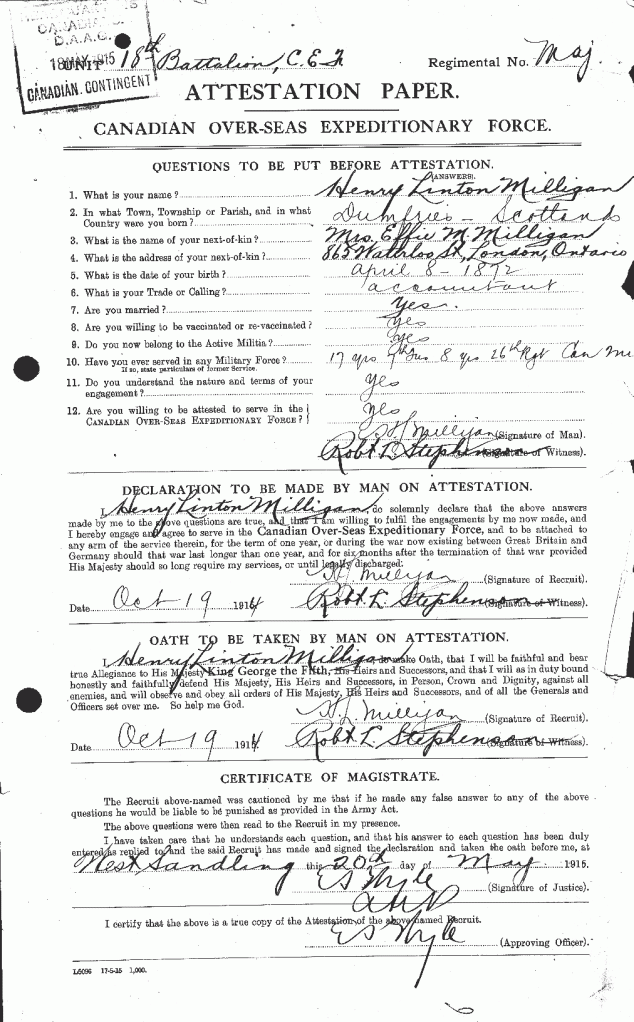 CANADIAN
D.A.A.G.
18 MAY 1915
CANADIAN CONTINGENT
UNIT 18th Battalion, C.E.F
Regimental No. Maj
ATTESTATION PAPER.
CANADIAN OVER-SEAS EXPEDITIONARY FORCE.
QUESTIONS TO BE PUT BEFORE ATTESTATION.
(ANSWERS).
1. What is your name? Henry Linton Milligan
2. In what Town, Township or Parish, and in what
Country were you born? Dumfries - Scotland
3. What is the name of your next-of-kin? Mrs. Effie M. Milligan
4. What is the address of your next-of-kin? 863 Waterloo St, London, Ontario
5. What is the date of your birth? April 8 - 1872
6. What is your Trade or Calling? accountant
7. Are you married? Yes.
8. Are you willing to be vaccinated or re-vaccinated? Yes
9. Do you now belong to the Active Militia? Yes
10. Have you ever served in any Military Force? 17 yrs 7th Fus 8 yrs 26th Rgt Can Mi
If so, state particulars of former Service.
11. Do you understand the nature and terms of your
engagement? Yes
12. Are you willing to be attested to serve in the
CANADIAN OVER-SEAS EXPEDITIONARY FORCE? Yes
H L Milligan (Signature of Man).
Robt L Stephenson (Signature of Witness).
DECLARATION TO BE MADE BY MAN ON ATTESTATION.
I, Henry Linton Milligan, do solemnly declare that the above answers
made by me to the above questions are true, and that I am willing to fulfil the engagements by me now made, and
I hereby engage and agree to serve in the Canadian Over-Seas Expeditionary Force, and to be attached to
any arm of the service therein, for the term of one year, or during the war now existing between Great Britain and
Germany should that war last longer than one year, and for six months after the termination of that war provided
His Majesty should so long require my services, or until legally discharged.
H L Milligan (Signature of Recruit).
Date Oct 19 1914 Robt L Stephenson (Signature of Witness).
OATH TO BE TAKEN BY MAN ON ATTESTATION.
I, Henry Linton Milligan, do make Oath, that I will be faithful and bear
true Allegiance to His Majesty King George the Fifth, His Heirs and Successors, and that I will as in duty bound
honestly and faithfully defend His Majesty, His Heirs and Successors, in Person, Crown and Dignity, against all
enemies, and will observe and obey all orders of His Majesty, His Heirs and Successors, and of all the Generals and
Officers set over me. So help me God.
H L Milligan (Signature of Recruit).
Date Oct 19 1914 Robt L. Stephenson (Signature of Witness).
CERTIFICATE OF MAGISTRATE.
The Recruit above-named was cautioned by me that if he made any false answer to any of the above
questions he would be liable to be punished as provided in the Army Act.
The above questions were then read to the Recruit in my presence.
I have taken care that he understands each question, and that his answer to each question has been duly
entered as replied to, and the said Recruit has made and signed the declaration and taken the oath before me, at
West Sandling this 20th day of May 1915.
(Signature of Justice).
I certify that the above is a true copy of the Attestation of the above-named Recruit.
(Approving Officer).
L5096 17-5-15 1,000.